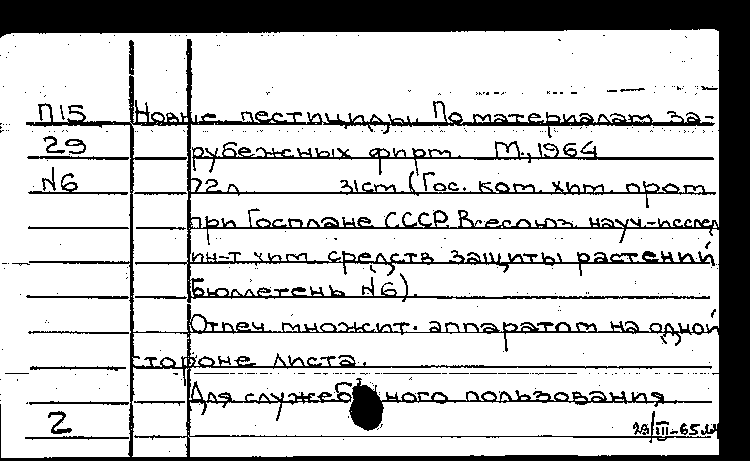 П15 Новые пестициды. По материалам за-
29 рубежных фирм. М., 1964
№6 72л 31см (Гос. ком. хим. пром
при Госплане СССР. Всесоюз. науч.-исслед
ин-т хим. средств защиты растений
Бюллетень №6).
Отпеч. множит. аппаратом на одной
стороне листа.
Для служебного пользования
2